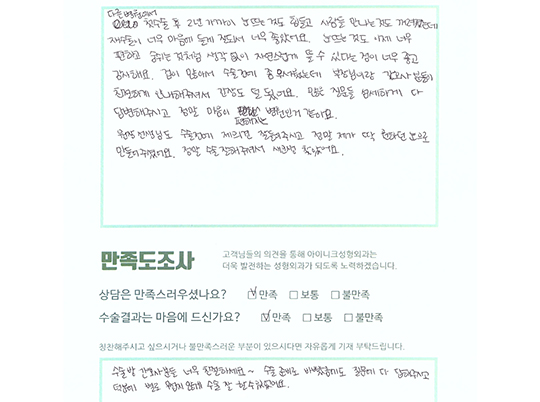 다른 병원에서
첫수술 후 2년 가까이 눈뜨는 것도 힘들고 사람들 만나는 것도 꺼려졌는데
재수술이 너무 마음에 들게 잘되서 너무 좋았어요. 눈뜨는 것도 이제 너무
편하고 숨쉬는 것처럼 생각 없이 자연스럽게 뜰 수 있다는 점이 너무 좋고
감사해요. 겁이 많아서 수술전에 좀 무서웠는데 부장님이랑 간호사님들이
친절하게 안내해주셔서 긴장도 덜 됐어요. 모든 질문들 섬세하게 다
답변해주시고 정말 마음이 편해지는 병원인거 같아요.
원장선생님도 수술전에 제의견 잘들어주시고 정말 제가 딱 원하던 눈으로
만들어주셨어요. 정말 수술 잘해주셔서 새인생 찾았어요.
만족도조사
고객님들의 의견을 통해 아이니크성형외과는
더욱 발전하는 성형외과가 되도록 노력하겠습니다.
상담은 만족스러우셨나요? ☑ 만족 ☐ 보통 ☐ 불만족
수술결과는 마음에 드신가요? ☑ 만족 ☐ 보통 ☐ 불만족
칭찬해주시고 싶으시거나 불만족스러운 부분이 있으시다면 자유롭게 기재 부탁드립니다.
수술방 간호사분들 너무 친절하세요~ 수술 준비로 바빴을텐데도 질문에 다 답해주시고
덕분에 별로 무섭지 않게 수술 잘 할수있었어요.